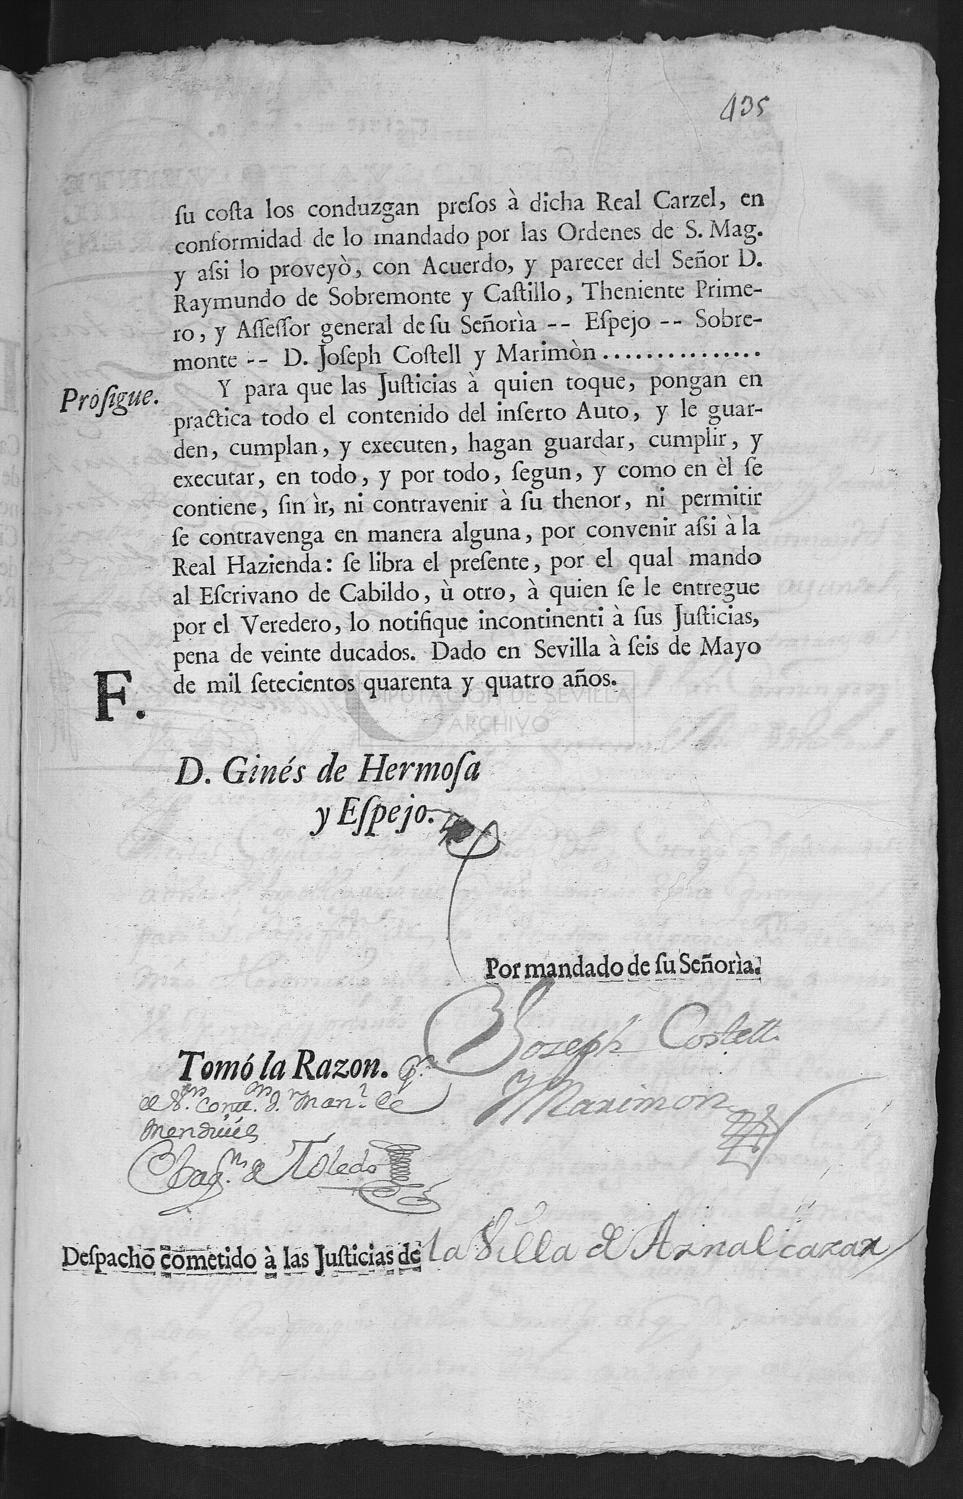 435
ſu coſta los conduzgan preſos à dicha Real Carzel, en
conformidad de lo mandado por las Ordenes de S. Mag.
y aſsi lo proveyò, con Acuerdo, y parecer del Señor D.
Raymundo de Sobremonte y Caſtillo, Theniente Prime-
ro, y Aſſeſſor general de ſu Señorìa -- Eſpejo -- Sobre-
monte -- D. Joſeph Coſtell y Marimòn ...............
Proſigue. Y para que las Juſticias à quien toque, pongan en
practica todo el contenido del inſerto Auto, y le guar-
den, cumplan, y executen, hagan guardar, cumplir, y
executar, en todo, y por todo, ſegun, y como en èl ſe
contiene, ſin ìr, ni contravenir à ſu thenor, ni permitir
ſe contravenga en manera alguna, por convenir aſsi à la
Real Hazienda: ſe libra el preſente, por el qual mando
al Eſcrivano de Cabildo, ù otro, à quien ſe le entregue
por el Veredero, lo notifique incontinenti à ſus Juſticias,
pena de veinte ducados. Dado en Sevilla à ſeis de Mayo
de mil ſetecientos quarenta y quatro años.
F.
DIPUTACION DE SEVILLA
ARCHIVO
D. Ginés de Hermoſa
y Eſpejo.
Por mandado de ſu Señorìa.
Joseph Costell
Marimon
Tomó la Razon.
de Toledo
Deſpacho cometido à las Juſticias de la Villa de Aznalcazar